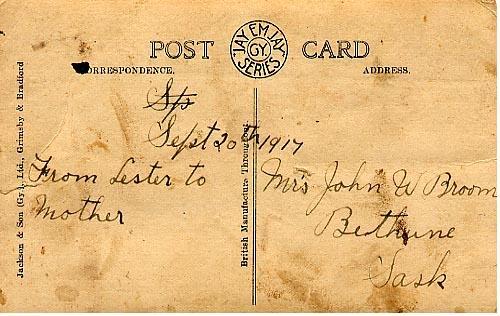 POST CARD
'JAY EM JAY' GY. SERIES
CORRESPONDENCE.
ADDRESS.
Sept 20th 1917
From Lester to
Mother
Mrs John W Broom
Bethune
Sask
Jackson & Son (Gy.), Ltd., Grimsby & Bradford
British Manufacture Throughout